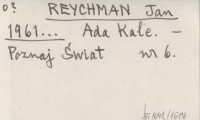 o? REYCHMAN Jan
1961... Ada Kale. —
Poznaj Świat nr 6.